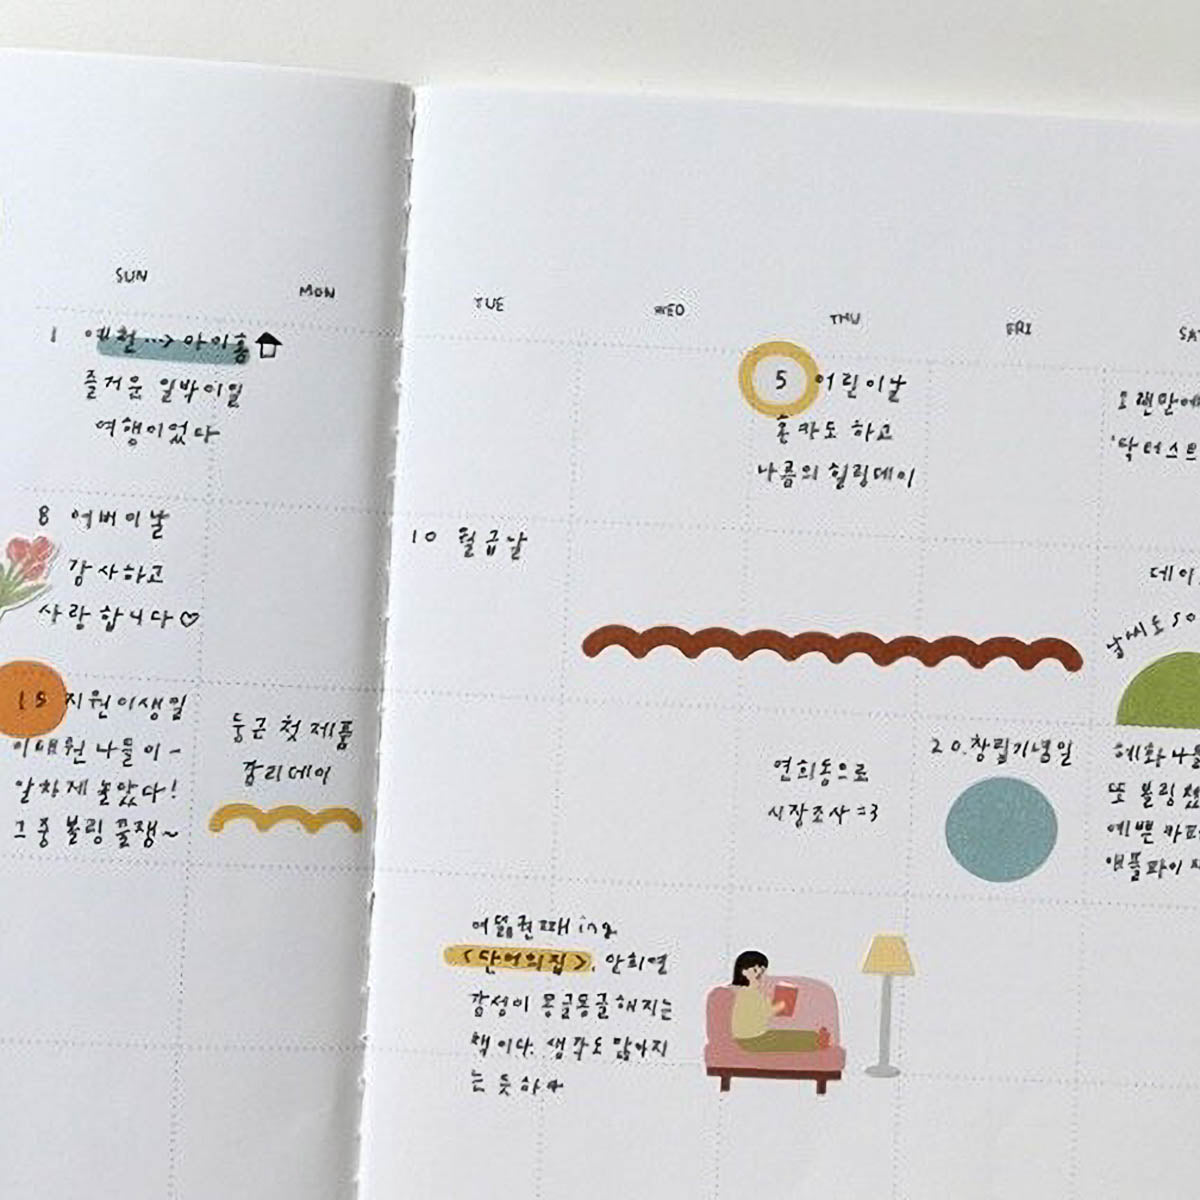 SUN
MON
TUE
WED
THU
FRI
SA
1 예천 ··> 마이홈
즐거운 일박이일
여행이었다
5 어린이날
혼카도 하고
나름의 힐링데이
오랜만에
'닥터스트
8 어버이날
감사하고
사랑합니다♡
10 월급날
데이
날씨도 so
15 지원이생일
이태원 나들이~
알차게 놀았다!
그 중 볼링 꿀잼~
둥근 첫 제품
갈리데이
연희동으로
시장조사 =3
20. 창립기념일
혜화 나들
또 볼링쳤
예쁜 카페
애플파이
여덟권째 ing
<단어의 집>. 안희연
감성이 몽글몽글해지는
책이다. 생각도 많아지
는 듯 하다